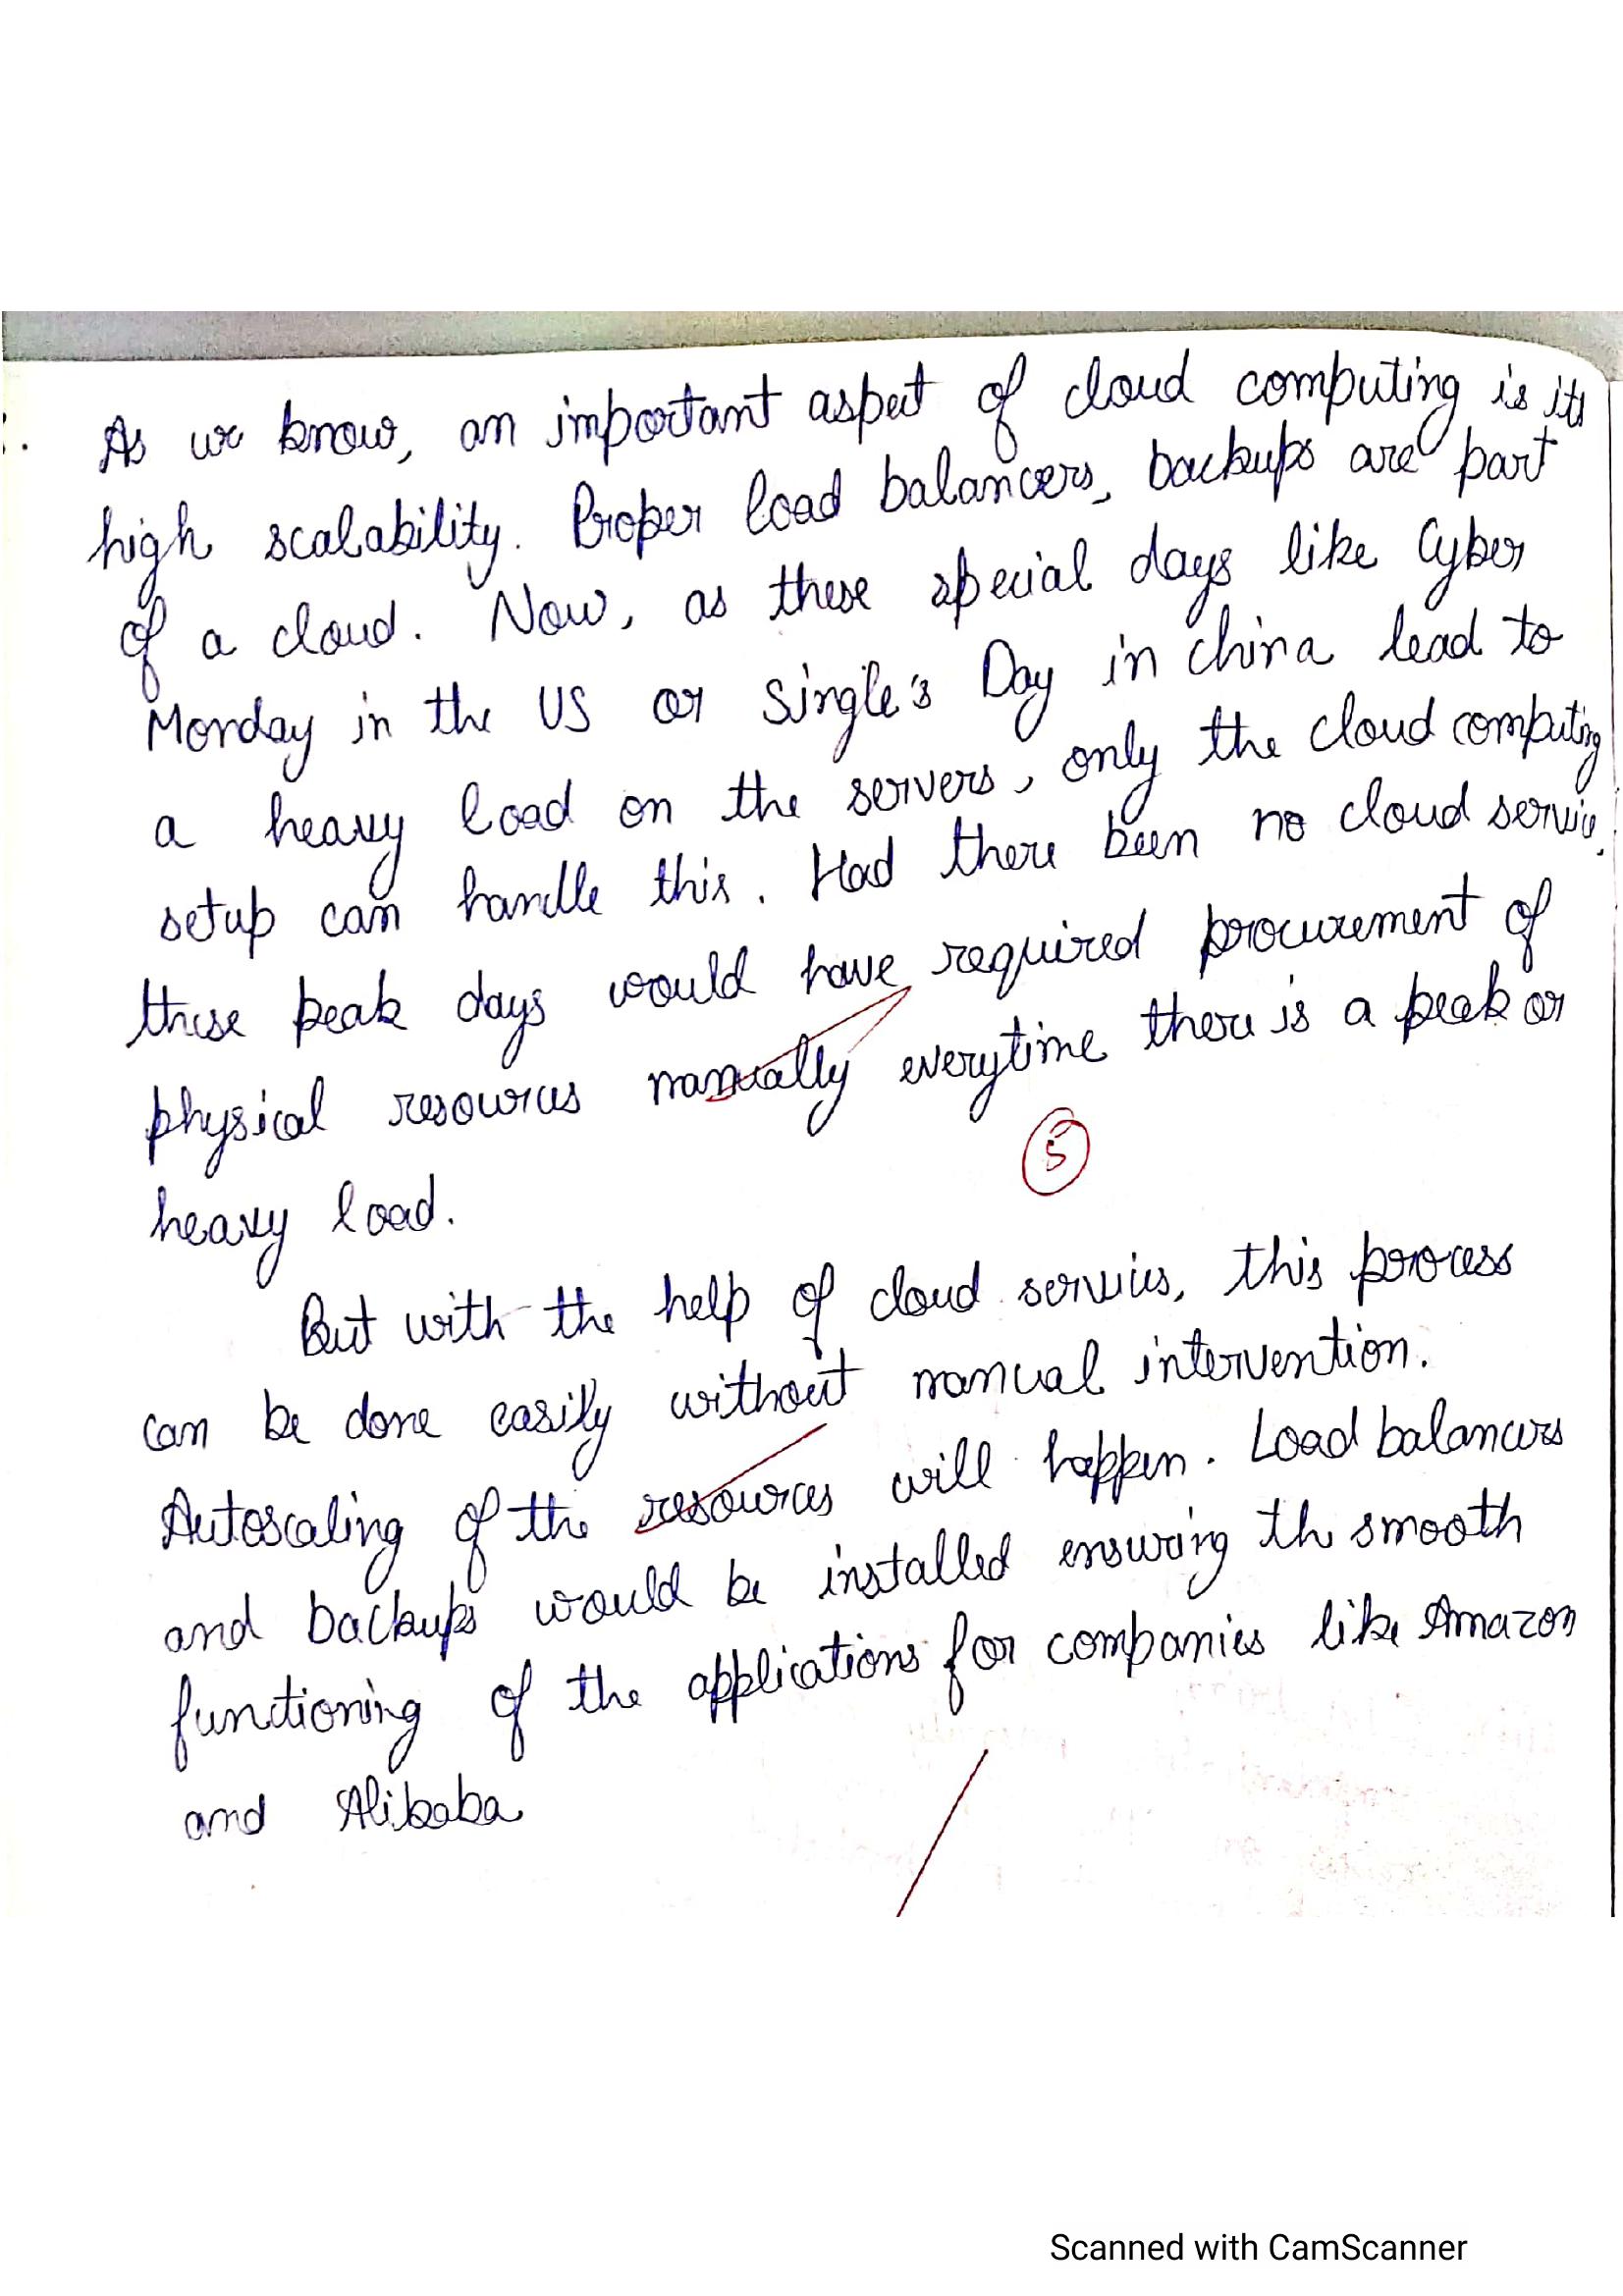 As we know, an important aspect of cloud computing is its
high scalability. Proper load balancers, backups are part
of a cloud. Now, as these special days like Cyber
Monday in the US or Single's Day in China lead to
a heavy load on the servers, only the cloud computing
setup can handle this. Had there been no cloud service,
these peak days would have required procurement of
physical resources manually everytime there is a peak or
5
heavy load.
But with the help of cloud services, this process
can be done easily without manual intervention.
Autoscaling of the resources will happen. Load balancers
and backups would be installed ensuring th smooth
functioning of the applications for companies like Amazon
and Alibaba
Scanned with CamScanner